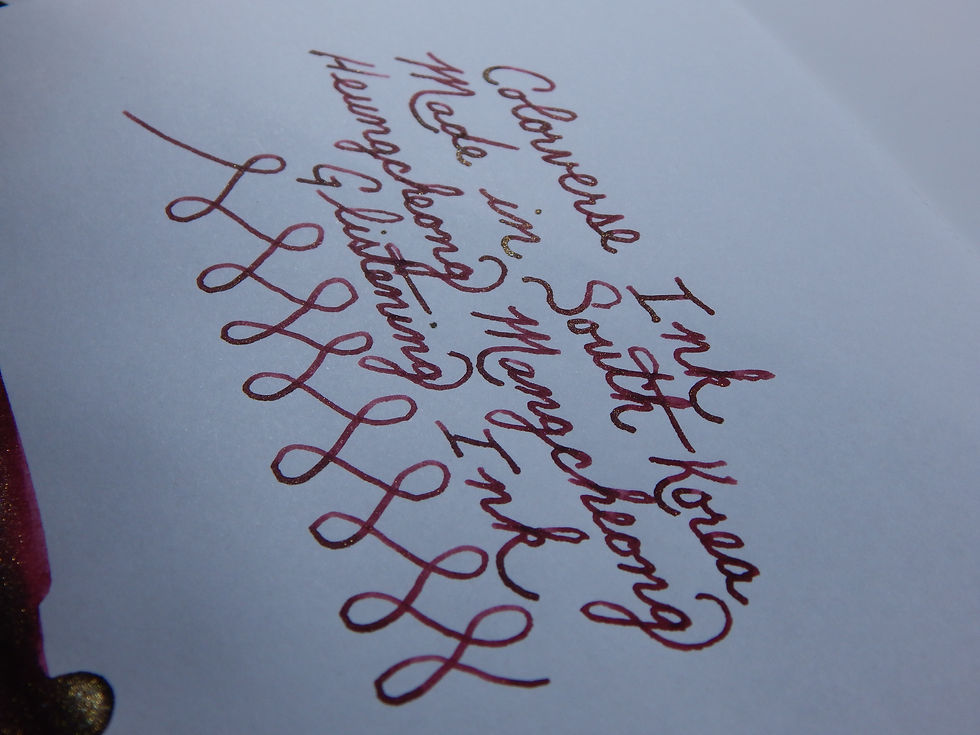 Colorverse Ink
Made in South Korea
Heungcheong Mangcheong
Glistening Ink